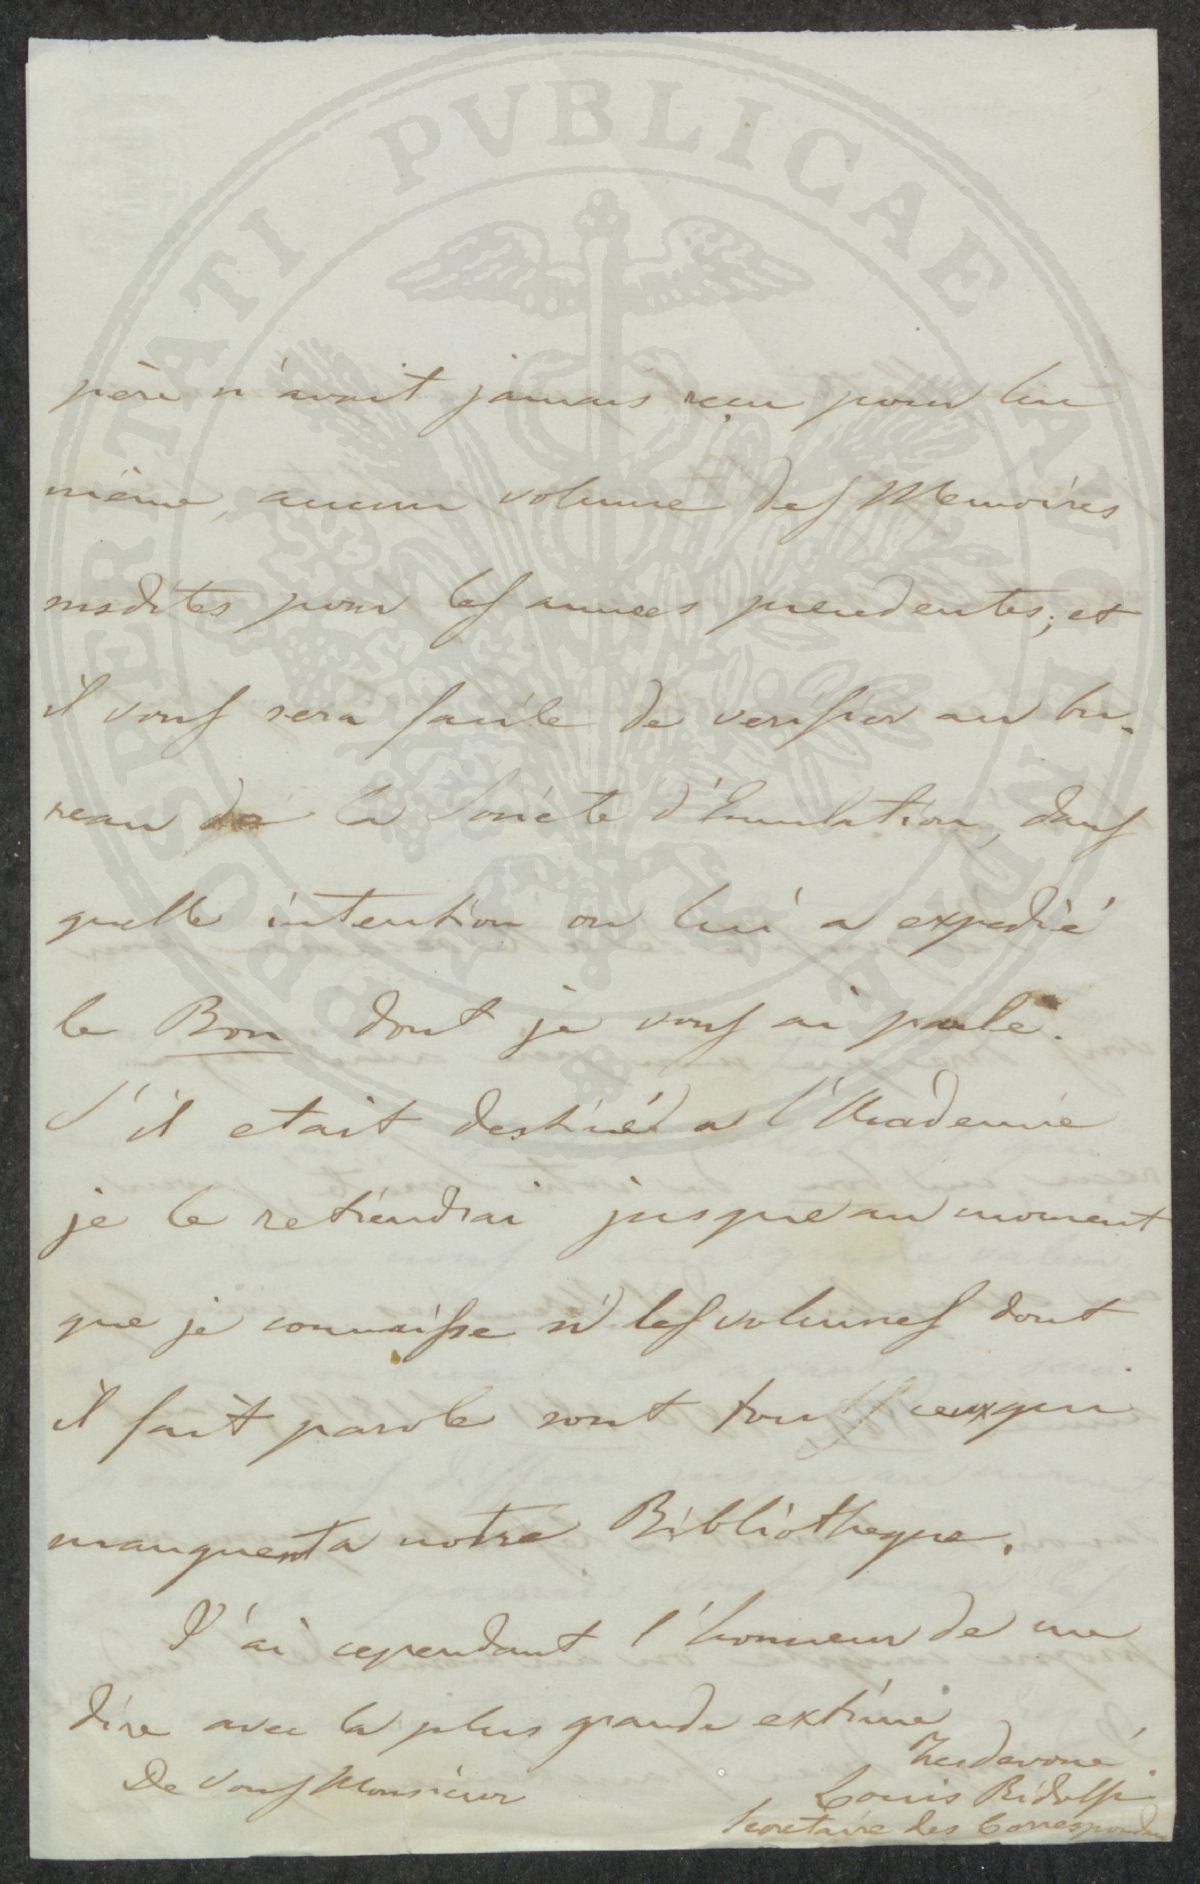 PROSPERITATI PVBLICAE AVGENDAE
père n'avait jamais reçu pour lui
même, aucun volume des Memoires
susdites pour les annees precedentes; et
il vous sera facile de verifier au bu-
reau de la Société d'Emulation, dans
quelle intention on lui a expedié
le Bon dont je vous ai parlé.
S'il etait destiné a l'Académie
je le retiendrai jusque au moment
que je connaisse si les volumes dont
il fait parole sont tous ceux qui
manquent a notre Bibliotheque.
J'ai cependant l'honneur de me
dire avec la plus grande extime
De Vous Monsieur
Tres devoué
Louis Ridolfi
Secretaire des Correspondan